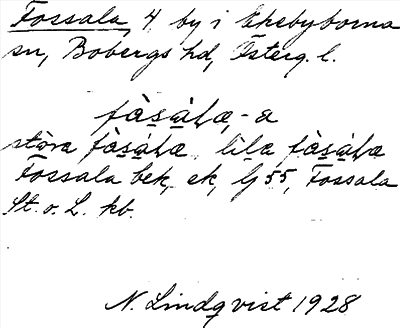 Fossala, 4 by i Ekebyborna
sn, Bobergs hd, Österg. l.
fàsàlæ, -a
stòra fàsàlæ, lìla fàsàlæ
Fossala bek, ek, Lj 55, Fossala
St. o. L. kb.
N. Lindqvist 1928